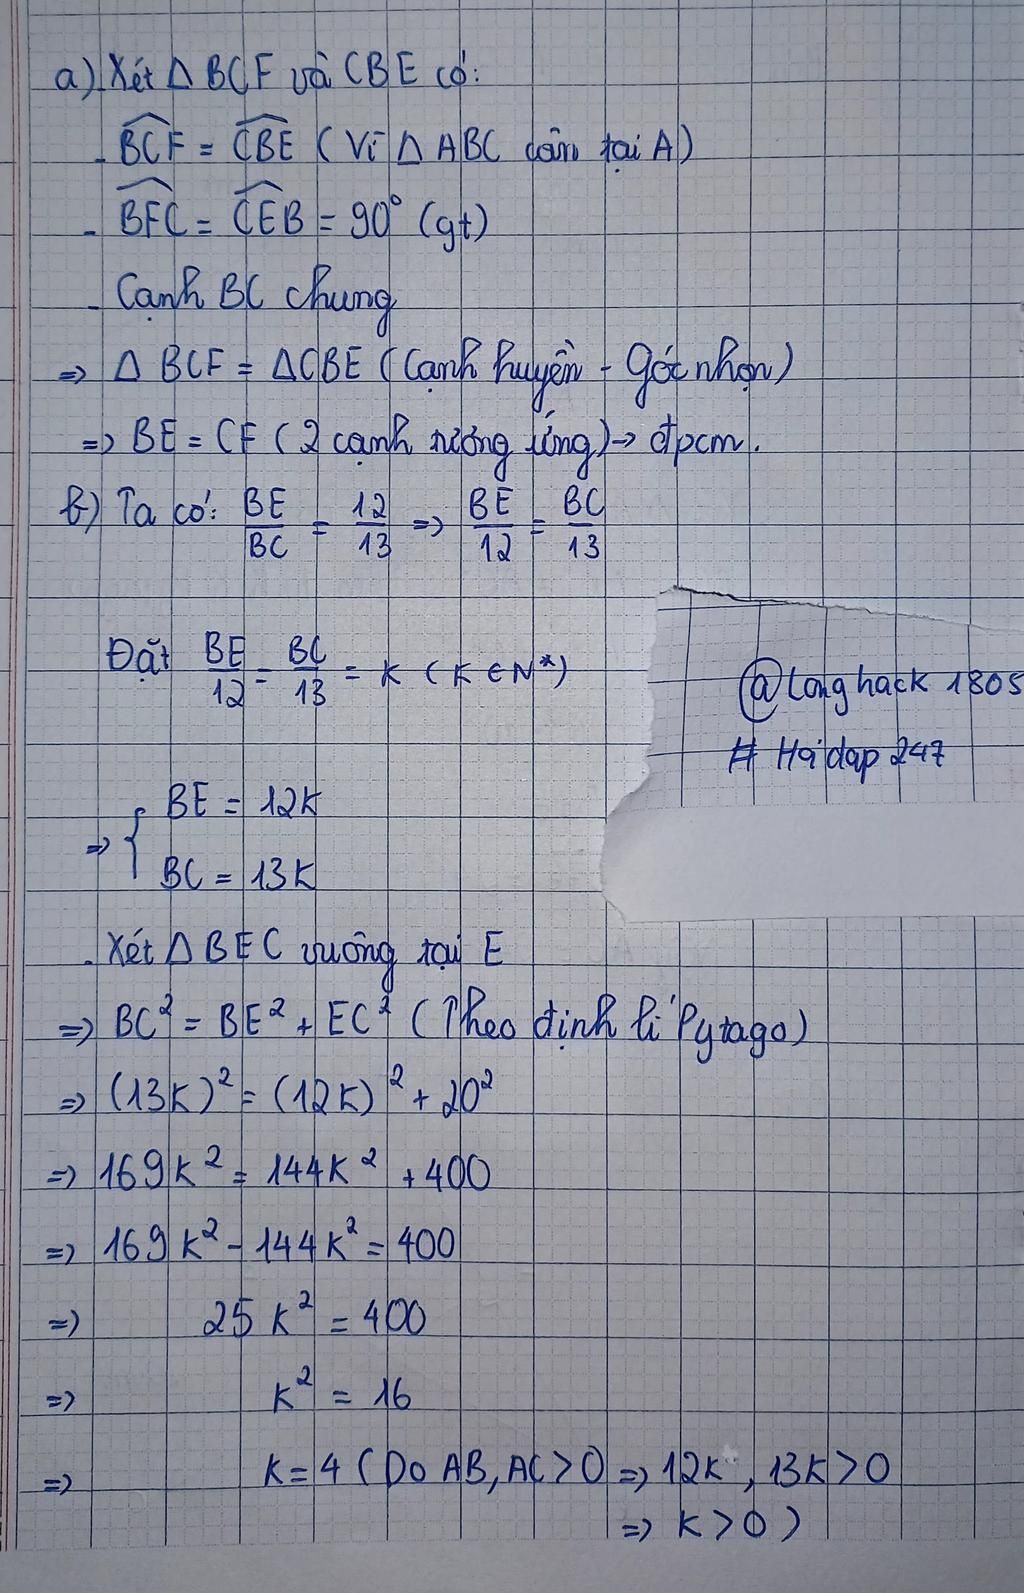 a) Xét △ BCF và CBE có:
- BCF = CBE (Vì △ ABC cân tại A)
- BFC = CEB = 90° (gt)
- Cạnh BC chung
=> △ BCF = △CBE (Cạnh huyền - Góc nhọn)
=> BE = CF (2 cạnh tương ứng) → đpcm.
b) Ta có: BE/BC = 12/13 => BE/12 = BC/13
Đặt BE/12 = BC/13 = K (K ∈ N*)
@Longhack 1805
# Hỏi đap 247
=> { BE = 12K
BC = 13K
. Xét △ BEC vuông tại E
=> BC² = BE² + EC² (Theo định lí Pytago)
=> (13K)² = (12K)² + 20²
=> 169K² = 144K² + 400
=> 169K² - 144K² = 400
=> 25K² = 400
=> K² = 16
=> K = 4 (Do AB, AC > 0 => 12K, 13K > 0
=> K > 0)